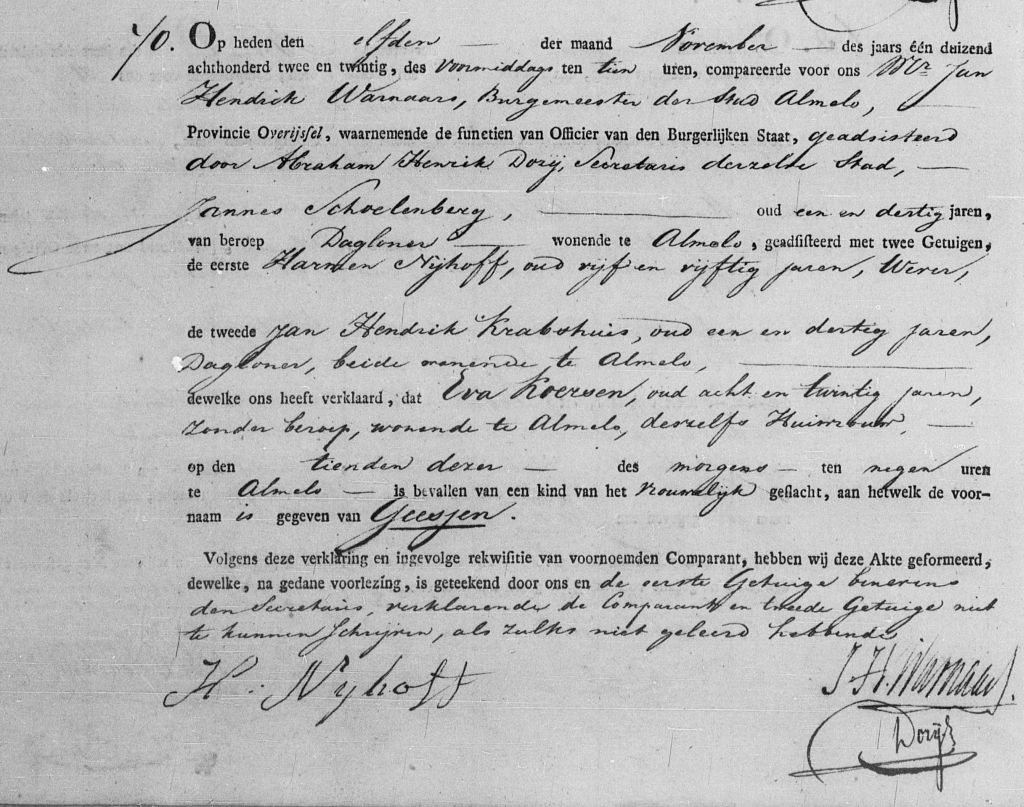 70. Op heden den elfden der maand November des jaars één duizend
achthonderd twee en twintig, des voormiddags ten tien uren, compareerde voor ons Mr. Jan
Hendrik Warnaars, Burgemeester der Stad Almelo,
Provincie Overijssel, waarnemende de functien van Officier van den Burgerlijken Staat, geadsisteerd
door Abraham Henrik Dorij, Secretaris derzelve Stad,
Jannes Schoelenberg, oud een en dertig jaren,
van beroep Dagloner wonende te Almelo, geadsisteerd met twee Getuigen,
de eerste Harmen Nijhoff, oud vijf en vijftig jaren, Wever,
de tweede Jan Hendrik Krabshuis, oud een en dertig jaren,
Dagloner, beide wonende te Almelo,
dewelke ons heeft verklaard, dat Eva Koersen, oud acht en twintig jaren,
zonder beroep, wonende te Almelo, deszelfs Huisvrouw,
op den tienden dezer des morgens ten negen uren
te Almelo is bevallen van een kind van het vrouwelijk geslacht, aan hetwelk de voor-
naam is gegeven van Geesjen.
Volgens deze verklaring en ingevolge rekwisitie van voornoemden Comparant, hebben wij deze Akte geformeerd,
dewelke, na gedane voorlezing, is geteekend door ons en de eerste Getuige benevens
den Secretaris, verklarende de Comparant en tweede Getuige niet
te kunnen schrijven, als zulks niet geleerd hebbende
H. Nyhoff J H. Warnaars.
Dorij